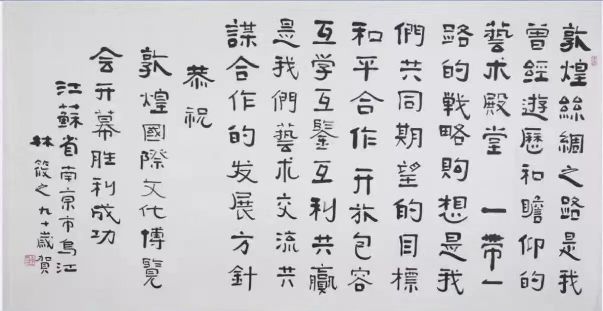 敦煌絲綢之路是我
曾經遊歷和瞻仰的
藝术殿堂 一帶一
路的戰略想是我
們共同期望的目標
和平合作 开放包容
互学互鑒互利共贏
是我們藝术交流共
謀合作的发展方針
恭祝
敦煌國際文化博覽
会开幕胜利成功
江蘇省南京市烏江
林筱之九十歲賀